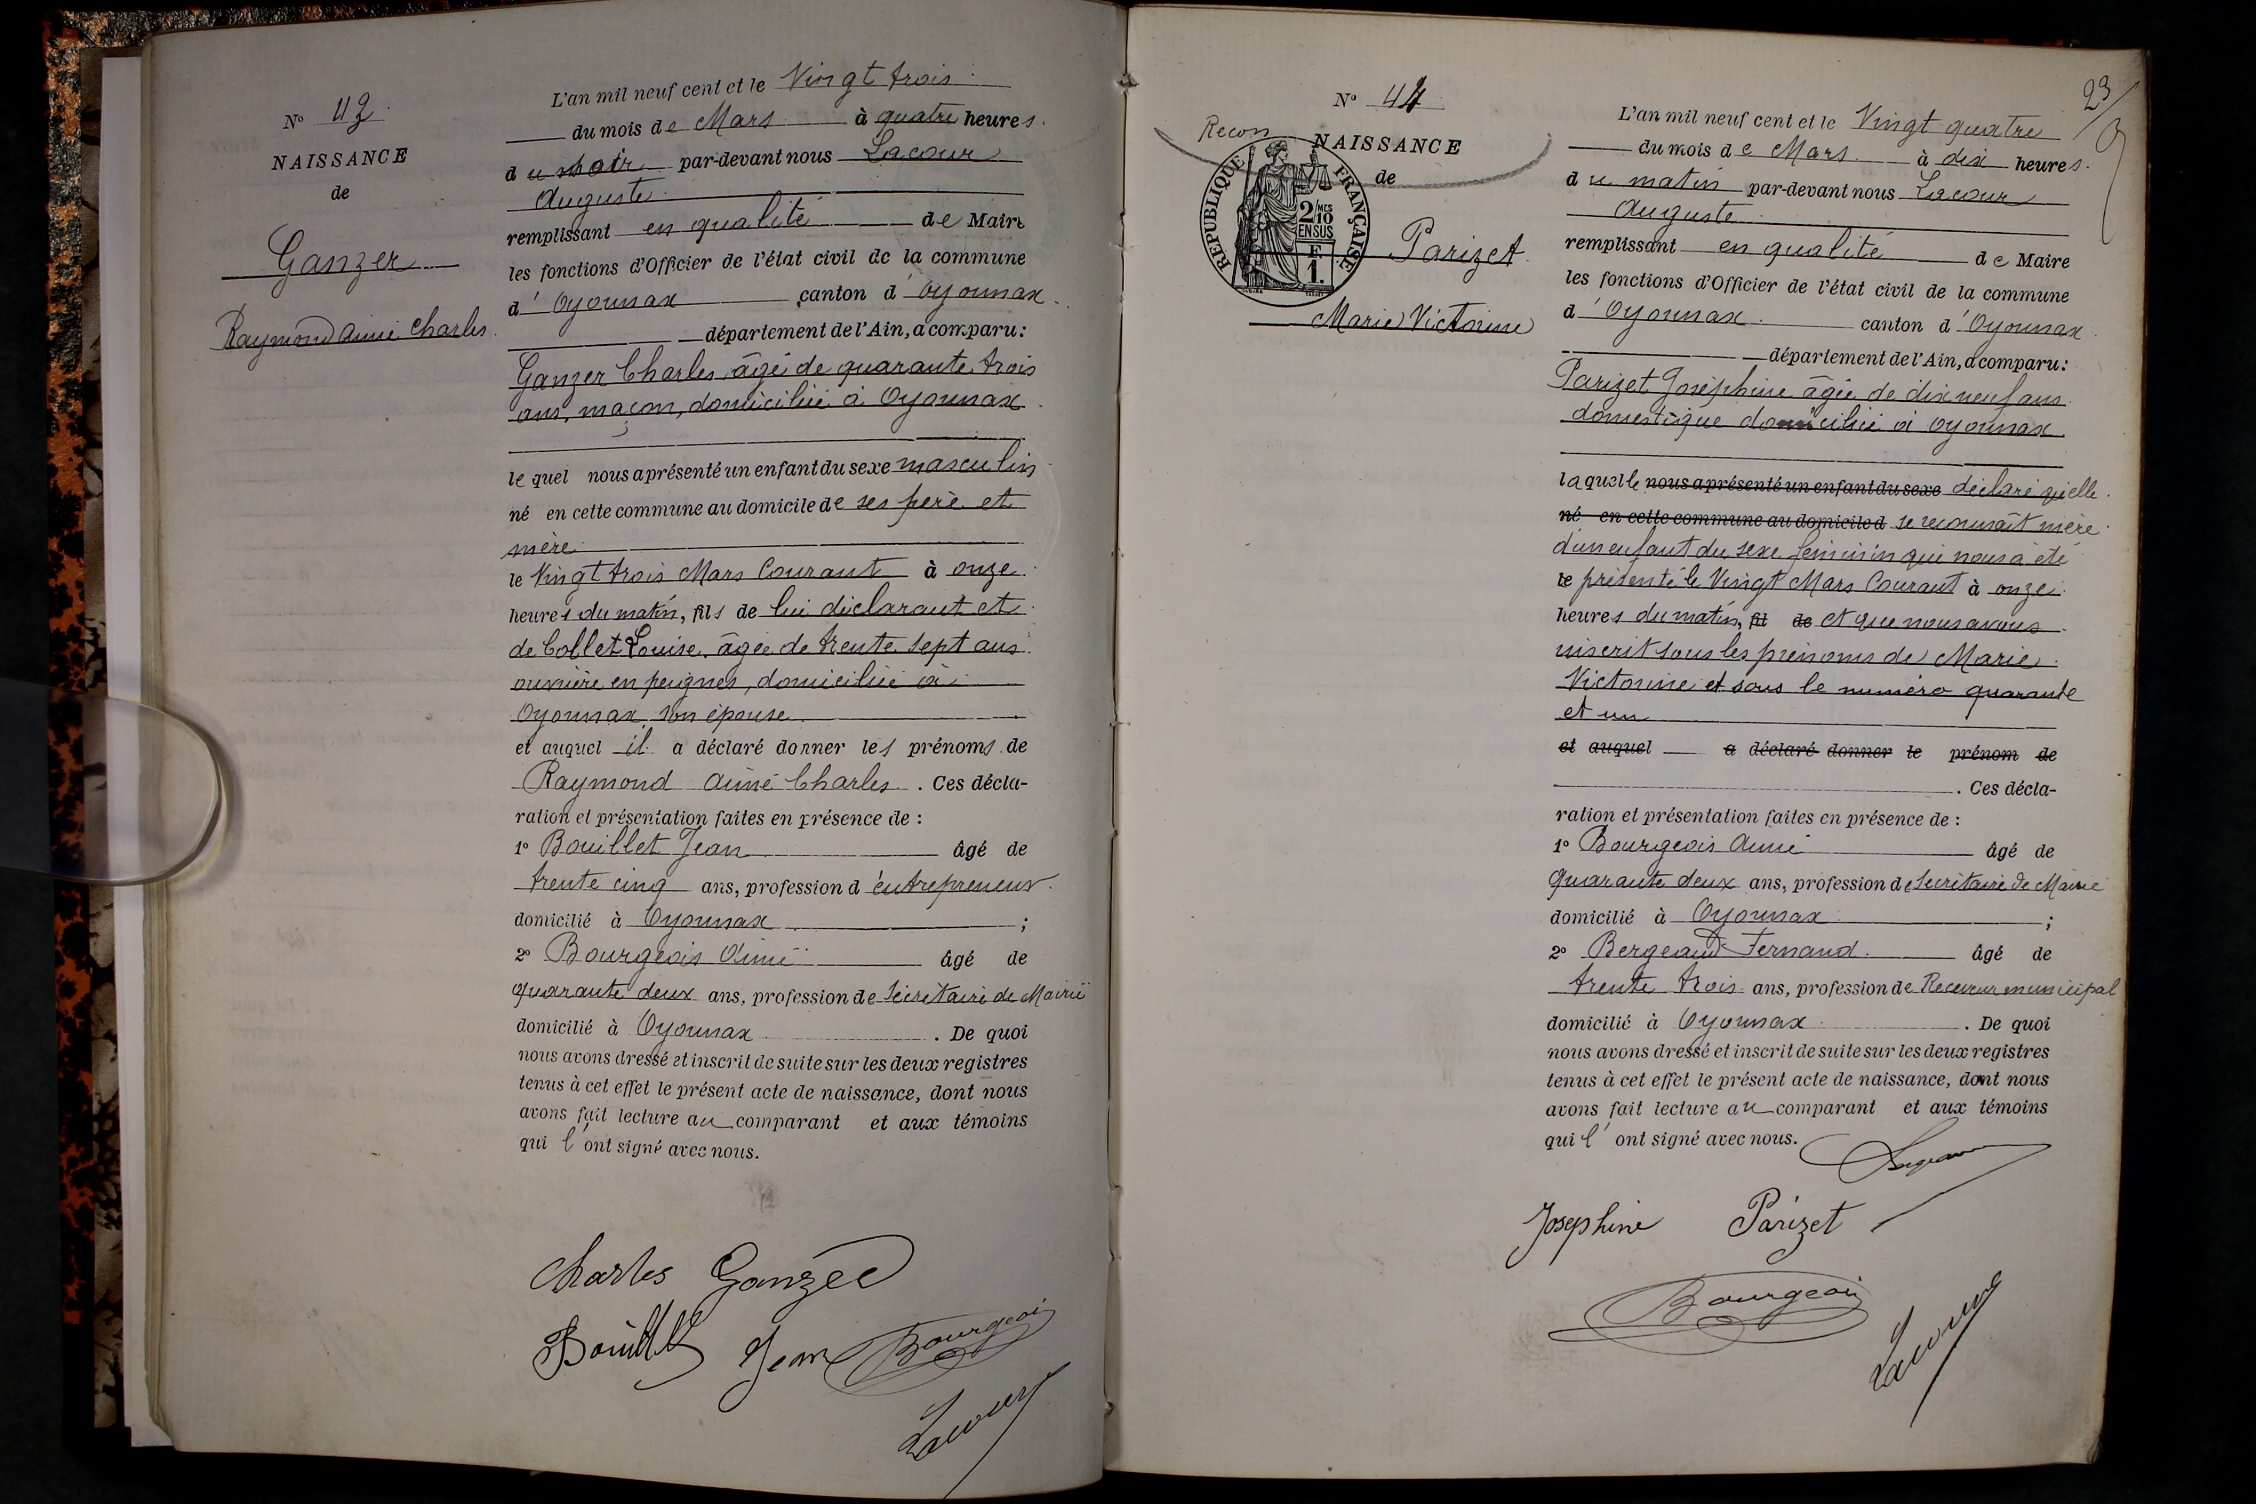 L'an mil neuf cent et le Vingt trois
N° 43
du mois de Mars à quatre heures
NAISSANCE
du soir par-devant nous Lacour
de
Auguste
remplissant en qualité de Maire
Ganzer
les fonctions d'Officier de l'état civil de la commune
d'Oyonnax canton d'Oyonnax
Raymond Aimé Charles
département de l'Ain, a comparu:
Ganzer Charles âgé de quarante trois
ans, maçon, domicilié à Oyonnax
lequel nous a présenté un enfant du sexe masculin
né en cette commune au domicile de ses père et
mère
le Vingt trois Mars Courant à onze
heures du matin, fils de lui déclarant et
de Collet Louise âgée de trente sept ans
ouvrière en peignes, domiciliée à
Oyonnax, son épouse
et auquel il a déclaré donner les prénoms de
Raymond Aimé Charles. Ces décla-
ration et présentation faites en présence de :
1° Bouillet Jean âgé de
trente cinq ans, profession d'entrepreneur
domicilié à Oyonnax ;
2° Bourgeois Aimé âgé de
quarante deux ans, profession de Secrétaire de Mairie
domicilié à Oyonnax. De quoi
nous avons dressé et inscrit de suite sur les deux registres
tenus à cet effet le présent acte de naissance, dont nous
avons fait lecture au comparant et aux témoins
qui l'ont signé avec nous.
Charles Ganzer
Bouillet Jean Bourgeois
Lacour
23
N° 44
L'an mil neuf cent et le Vingt quatre
Recon
NAISSANCE
du mois de Mars à dix heures
de
du matin par-devant nous Lacour
RÉPUBLIQUE FRANÇAISE
2/MES
10
EN SUS
F.
1.
Auguste
Parizet
remplissant en qualité de Maire
les fonctions d'Officier de l'état civil de la commune
Marie Victorine
d'Oyonnax canton d'Oyonnax
département de l'Ain, a comparu:
Parizet Joséphine âgée de dix neuf ans
domestique domiciliée à Oyonnax
laquelle nous a présenté un enfant du sexe déclaré qu'elle
né en cette commune au domicile d se reconnaît mère
d'un enfant du sexe féminin qui nous a été
le présenté le Vingt Mars Courant à onze
heures du matin, fil de et que nous avons
inscrit sous les prénoms de Marie
Victorine et sous le numéro quarante
et un
et auquel a déclaré donner le prénom de
. Ces décla-
ration et présentation faites en présence de :
1° Bourgeois Aimé âgé de
Quarante deux ans, profession de Secrétaire de Mairie
domicilié à Oyonnax ;
2° Bergeaud Fernand âgé de
trente trois ans, profession de Receveur municipal
domicilié à Oyonnax. De quoi
nous avons dressé et inscrit de suite sur les deux registres
tenus à cet effet le présent acte de naissance, dont nous
avons fait lecture au comparant et aux témoins
qui l'ont signé avec nous.
Josephine Parizet
Bourgeois
Lacour